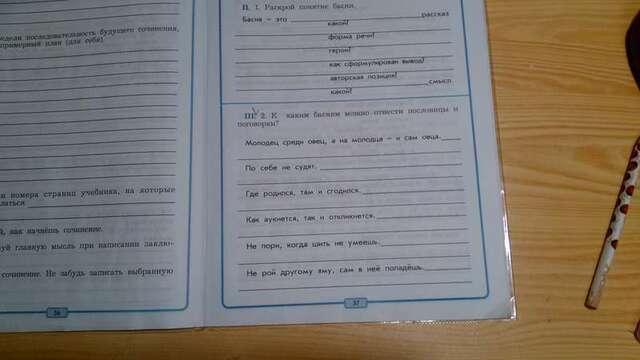 едели последовательность будущего сочинения,
примерный план (для себя).
и номера страниц учебника, на которые
латься
й, как начнёшь сочинение.
уй главную мысль при написании заклю-
сочинение. Не забудь записать выбранную
36
II. 1. Раскрой понятие басни.
Басня – это рассказ
какой?
форма речи?
герои?
как сформулирован вывод?
авторская позиция?
смысл
какой?
III. 2. К каким басням можно отнести пословицы и
поговорки?
Молодец среди овец, а на молодца – и сам овца.
По себе не судят.
Где родился, там и сгодился.
Как аукнется, так и откликнется.
Не пори, когда шить не умеешь.
Не рой другому яму, сам в неё попадёшь.
37